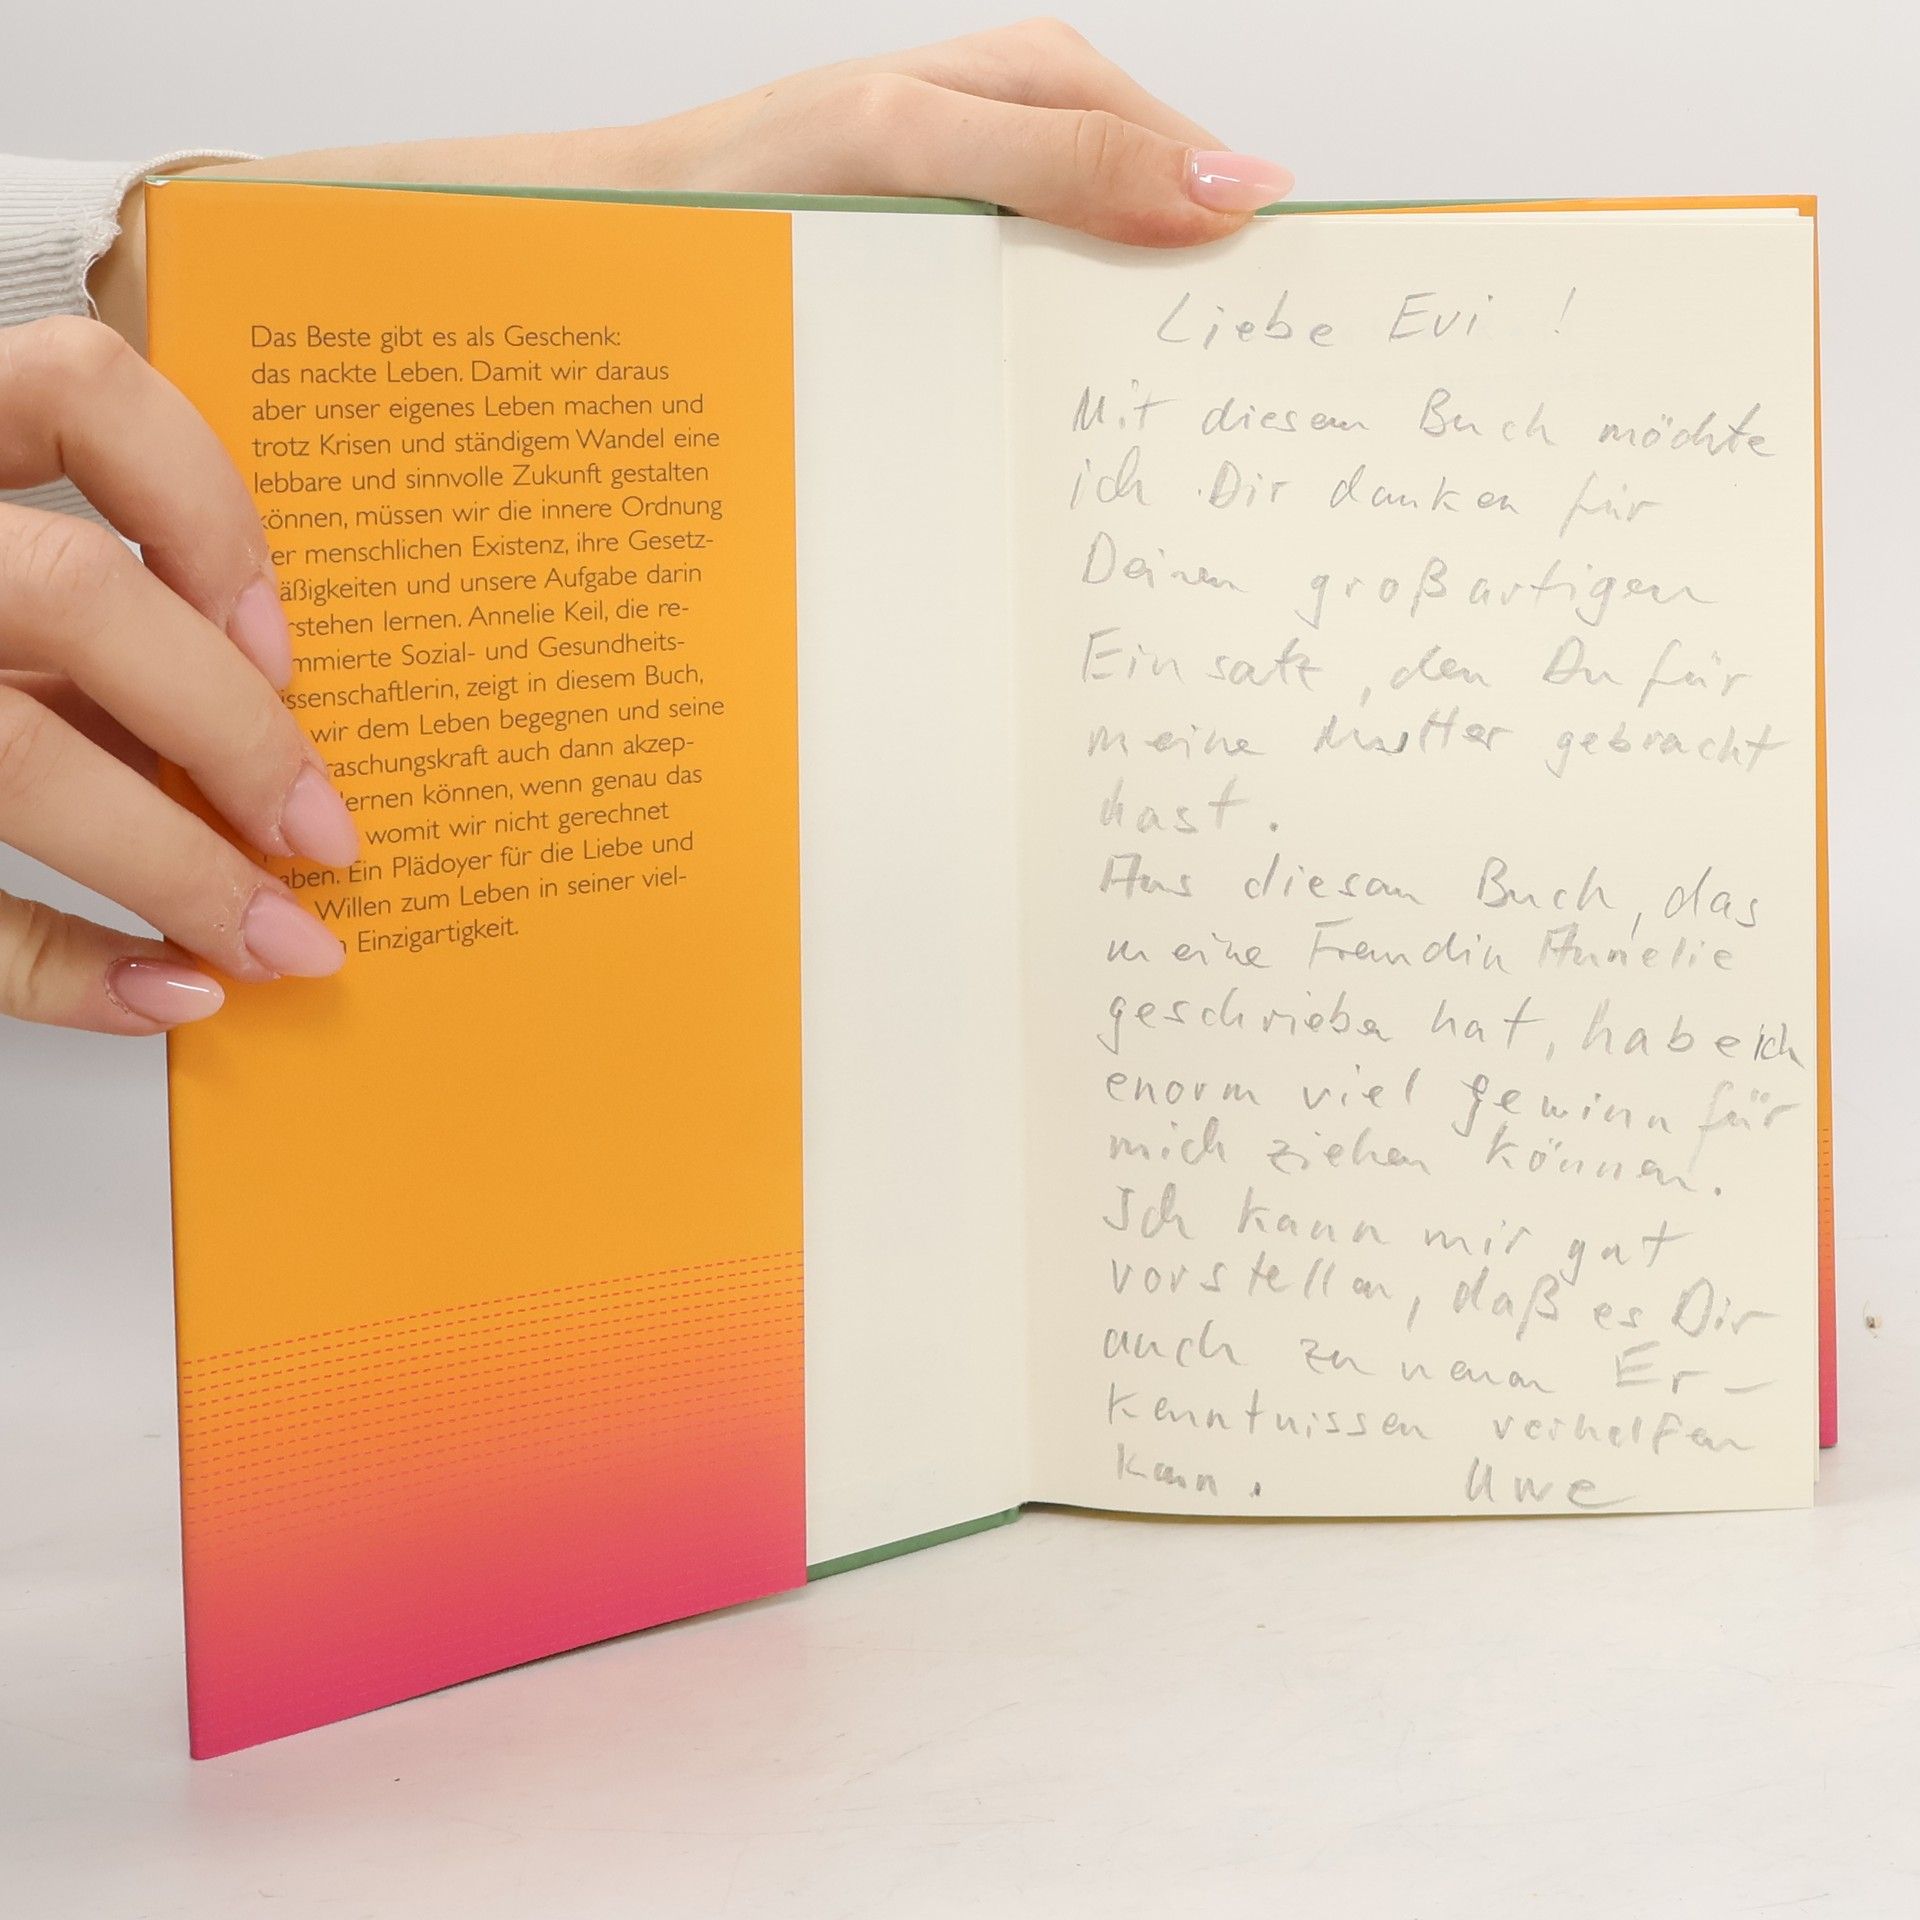 Das Beste gibt es als Geschenk:
das nackte Leben. Damit wir daraus
aber unser eigenes Leben machen und
trotz Krisen und ständigem Wandel eine
lebbare und sinnvolle Zukunft gestalten
können, müssen wir die innere Ordnung
er menschlichen Existenz, ihre Gesetz-
äßigkeiten und unsere Aufgabe darin
rstehen lernen. Annelie Keil, die re-
mmierte Sozial- und Gesundheits-
issenschaftlerin, zeigt in diesem Buch,
wir dem Leben begegnen und seine
raschungskraft auch dann akzep-
lernen können, wenn genau das
womit wir nicht gerechnet
aben. Ein Plädoyer für die Liebe und
Willen zum Leben in seiner viel-
n Einzigartigkeit.
Liebe Evi !
Mit diesem Buch möchte
ich Dir danken für
Deinen großartigen
Einsatz, den Du für
meine Mutter gebracht
hast.
Aus diesem Buch, das
meine Freundin Annelie
geschrieben hat, habe ich
enorm viel gewinn für
mich ziehen können.
Ich kann mir gut
vorstellen, daß es Dir
auch zu neuen Er-
kenntnissen verhelfen
kann. Uwe